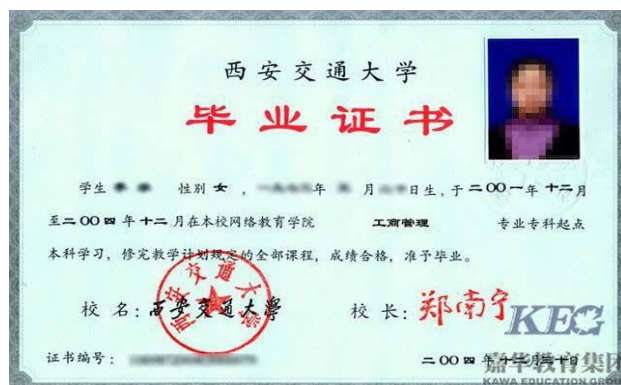 西安交通大学
毕业证书
学生 性别 女 , 年 月 日生，于二〇〇一年十二月
至二〇〇四年十二月在本校网络教育学院 工商管理 专业专科起点
本科学习，修完教学计划规定的全部课程，成绩合格，准予毕业。
校 名：西安交通大學
校 长：郑南宁
西安交通大学
KEG
证书编号：
二〇〇四年十二月三十日
嘉华教育集团
KAWA EDUCATION GROUP